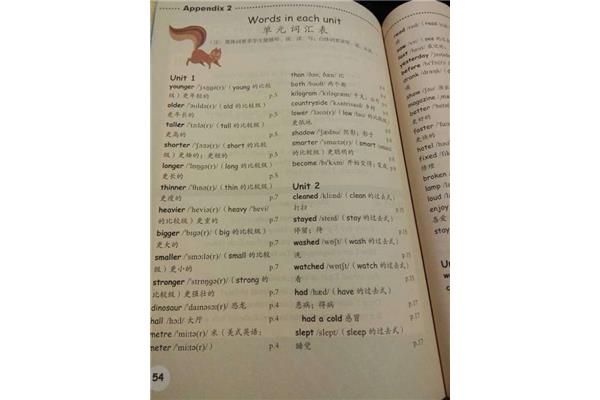 Appendix 2
Words in each unit
单元词汇表
Unit 1
younger /'jʌŋgə(r)/（young 的比较
级）更年轻的 p.5
older /'əʊldə(r)/（old 的比较级）
更年长的 p.5
taller /'tɔːlə(r)/（tall 的比较级）
更高的 p.5
shorter /'ʃɔːtə(r)/（short 的比较
级）更矮的；更短的 p.5
longer /'lɒŋgə(r)/（long 的比较级）
更长的 p.7
thinner /'θɪnə(r)/（thin 的比较级）
更瘦的 p.7
heavier /'hevɪə(r)/（heavy /'hevi/
的比较级）更重的 p.7
bigger /'bɪgə(r)/（big 的比较级）
更大的 p.7
smaller /'smɔːlə(r)/（small 的比较
级）更小的 p.7
stronger /'strɒŋgə(r)/（strong 的
比较级）更强壮的 p.7
dinosaur /'daɪnəsɔː(r)/ 恐龙 p.4
hall /hɔːl/ 大厅 p.4
metre /'miːtə(r)/ 米（美式英语：
meter /'miːtə(r)/） p.4
54
than /ðən; ðæn/ 比
both /bəʊθ/ 两个都
kilogram /'kɪləgræm/
countryside /'kʌntrisaɪd/ 乡村
lower /'ləʊə(r)/（low /ləʊ/ 的比较级）
更低地
shadow /'ʃædəʊ/ 阴影；影子
smarter /'smɑːtə(r)/（smart
的比较级）更聪明的
become /bɪ'kʌm/ 开始变得；变成
Unit 2
cleaned /kliːnd/（clean 的过去式）
打扫
stayed /steɪd/（stay 的过去式）
停留；待 p.15
washed /wɒʃt/（wash 的过去式）
洗 p.15
watched /wɒtʃt/（watch 的过去式）
看 p.15
had /hæd/（have 的过去式）
患病；得病
had a cold 感冒 p.17
slept /slept/（sleep 的过去式）
睡觉 p.17
read /red/（read
saw /sɔː/（see 的
last /lɑːst/
yesterday
before
drank /dræŋk/
show /ʃəʊ/
magazine
better
更好的
faster
更快的
hotel
fixed
修理
broken
lamp
loud
enjoy
喜爱
stay